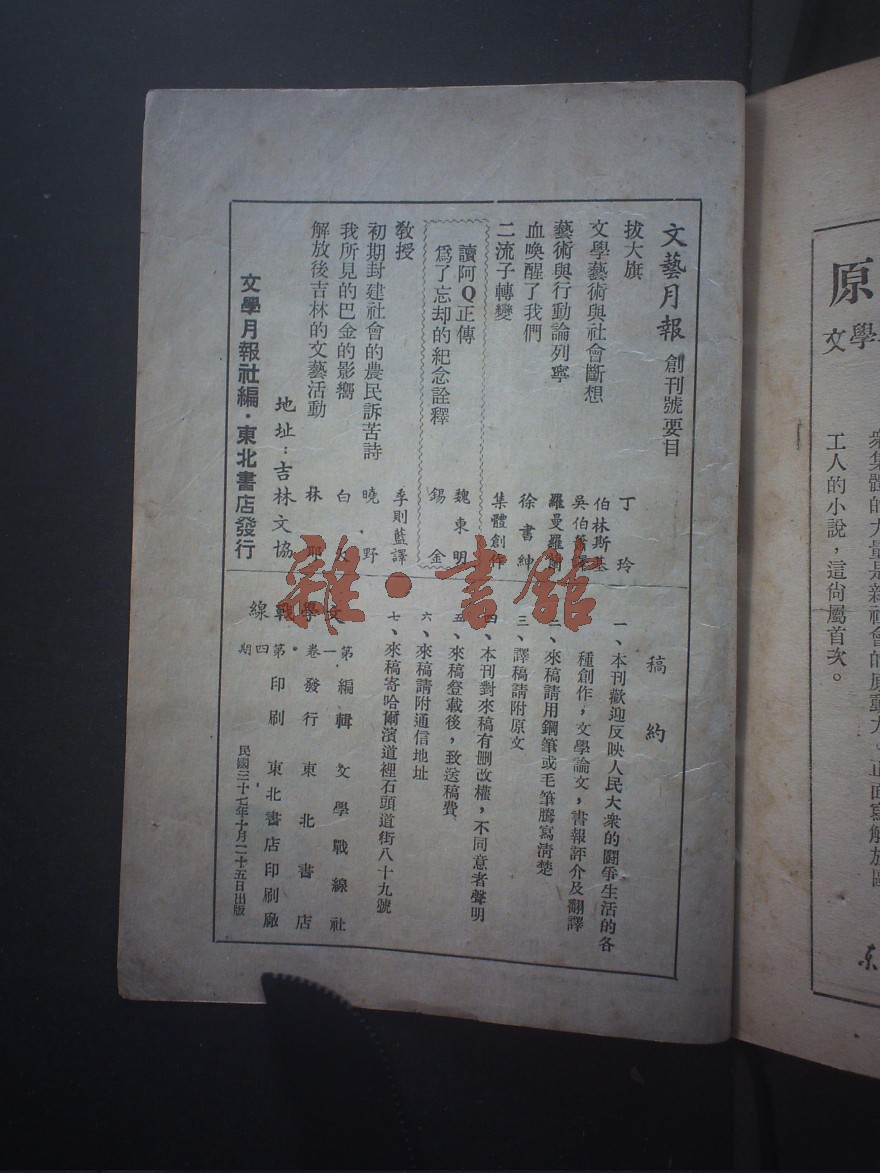 文藝月報 創刊號要目
拔大旗 丁玲
文學藝術與社會斷想 伯林斯基
藝術與行動論列寧 羅曼羅蘭 吳伯簫譯
血喚醒了我們 徐書紳
二流子轉變 集體創作
讀阿Q正傳 魏東明
爲了忘却的紀念詮釋 錫金
教授 李則藍譯
初期封建社會的農民訴苦詩 曉野
我所見的巴金的影嚮 白
解放後吉林的文藝活動 林耶
地址：吉林文協
文學月報社編·東北書店發行
稿約
一、本刊歡迎反映人民大衆的鬪爭生活的各
種創作，文學論文，書報評介及翻譯
二、來稿請用鋼筆或毛筆謄寫清楚
三、譯稿請附原文
四、本刊對來稿有删改權，不同意者聲明
五、來稿登載後，致送稿費
六、來稿請附通信地址
七、來稿寄哈爾濱道裡石頭道街八十九號
文學戰線
第一卷·第四期
編輯 文學戰線社
發行 東北書店
印刷 東北書店印刷廠
民國三十七年十月二十五日出版
雜·書館
原
文學
衆集體的大量是新社會的原動力。正面寫解放區
工人的小說，這尚屬首次。
东